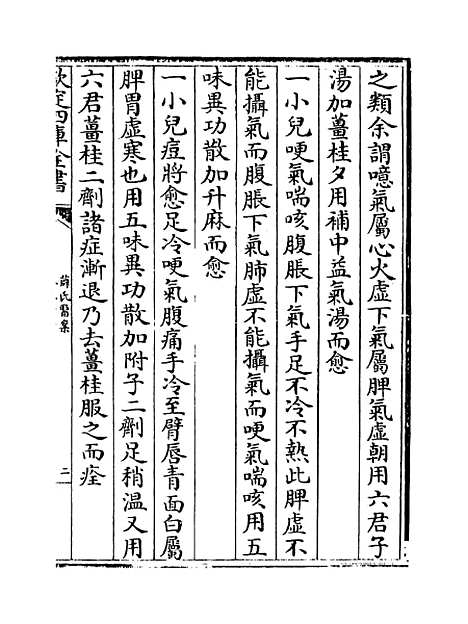 之類余謂噫氣屬心火虚下氣屬脾氣虚朝用六君子
湯加薑桂夕用補中益氣湯而愈
一小兒哽氣喘咳腹脹下氣手足不冷不熱此脾虚不
能攝氣而腹脹下氣肺虚不能攝氣而哽氣喘咳用五
味異功散加升麻而愈
一小兒痘將愈足冷哽氣腹痛手冷至臂唇青面白屬
脾胃虚寒也用五味異功散加附子二劑足稍温又用
六君薑桂二劑諸症漸退乃去薑桂服之而痊
欽定四庫全書
薛氏醫案
二